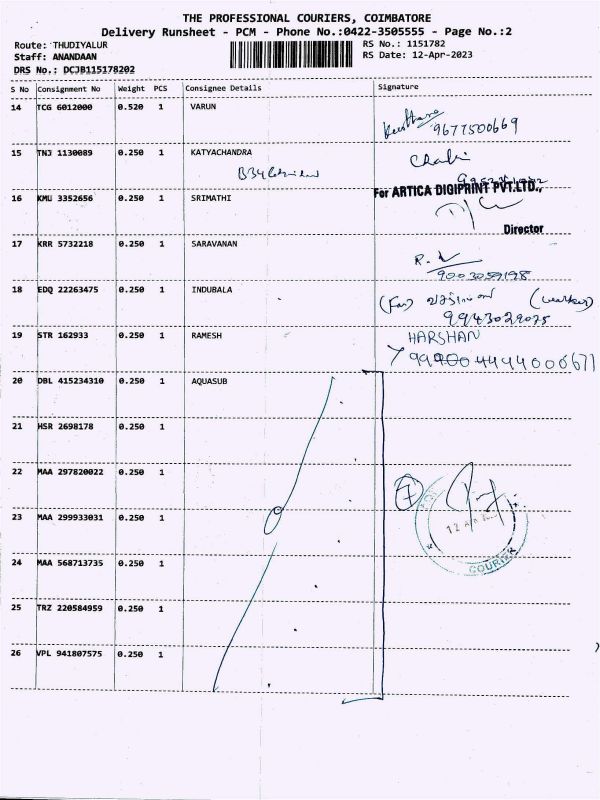 THE PROFESSIONAL COURIERS, COIMBATORE
Delivery Runsheet - PCM - Phone No.:0422-3505555 - Page No.:2
Route: THUDIYALUR RS No.: 1151782
Staff: ANANDAAN RS Date: 12-Apr-2023
DRS No.: DCJB115178202
S No Consignment No Weight PCS Consignee Details Signature
14 TCG 6012000 0.520 1 VARUN
9677500669
15 TNJ 1130089 0.250 1 KATYACHANDRA
For ARTICA DIGIPRINT PVT.LTD.,
16 KMU 3352656 0.250 1 SRIMATHI
Director
17 KRR 5732218 0.250 1 SARAVANAN
9003059198
18 EDQ 22263475 0.250 1 INDUBALA
9943029075
19 STR 162933 0.250 1 RAMESH HARSHAN
20 DBL 415234310 0.250 1 AQUASUB
21 HSR 2698178 0.250 1
22 MAA 297820022 0.250 1
7
23 MAA 299933031 0.250 1
24 MAA 568713735 0.250 1
COURIER
25 TRZ 220584959 0.250 1
26 VPL 941807575 0.250 1